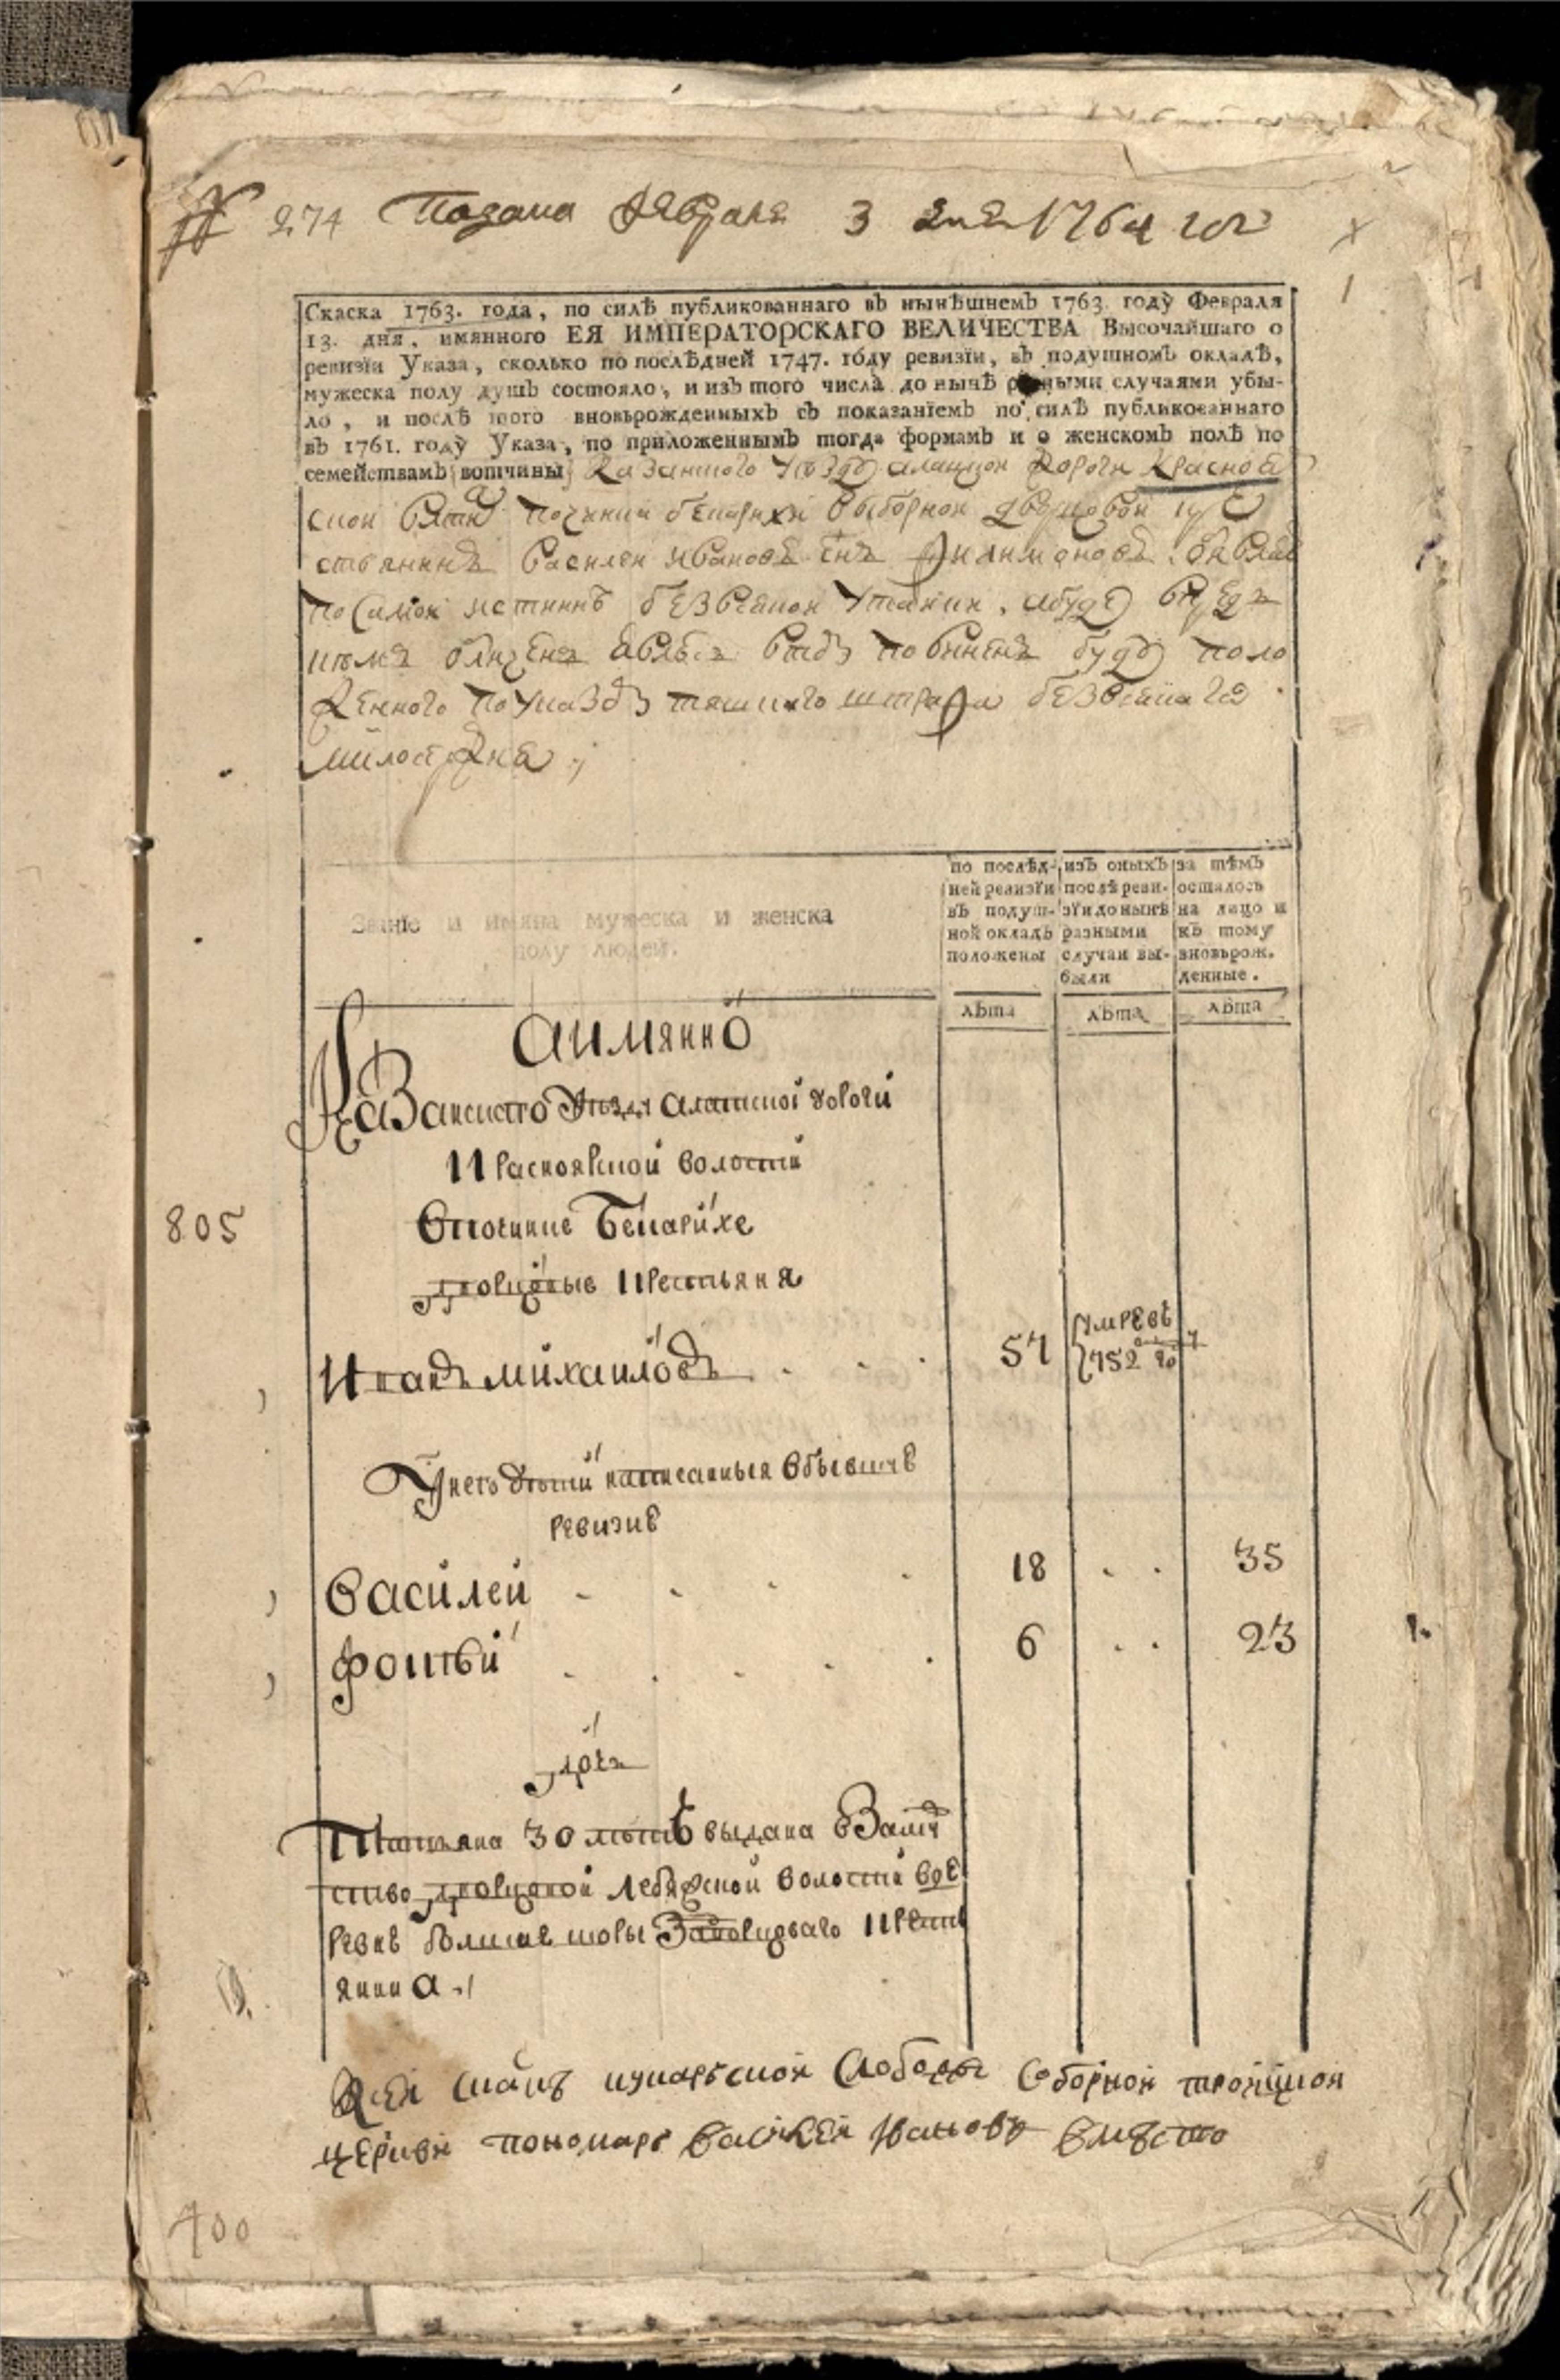 № 274 Подана февраля 3 дня 1764 году
Скаска 1763. года, по силѣ публикованнаго въ нынѣшнемъ 1763. году Февраля
13. дня, имяннаго ЕЯ ИМПЕРАТОРСКАГО ВЕЛИЧЕСТВА Высочайшаго о
ревизїи Указа, сколько по послѣдней 1747. году ревизїи, въ подушномъ окладѣ,
мужеска полу душъ состояло, и изъ того числа до нынѣ разными случаями убы-
ло, и послѣ того вновьрожденныхъ съ показанїемъ по силѣ публикованнаго
въ 1761. году Указа, по приложеннымъ тогда формамъ и о женскомъ полѣ по
семействамъ вотчины Казанского уезду алацкой дороги Красноя
ской волости починка бекарихи выборной дворцовой кре
стьянинъ василей ивановъ снъ филимоновъ
по самой истинне без всякой утайки, а буде впредь
кемъ обличенъ повиненъ буду поло
женного по указу тяжкаго штрафа без всякаго
милосердия
Званїе и имяна мужеска и женска
полу людей.
по послѣд-
ней ревизїи
въ подуш-
ной окладъ
положены
изъ оныхъ
послѣ реви-
зїи до нынѣ
разными
случаи вы-
были
за тѣмъ
осталось
на лицо и
къ тому
вновьрож-
денные.
лѣта лѣта лѣта
Аимянно
Казанскаго уезду алатской дороги
Красноярской волости
805 в починке Бекарихе
дворцовые крестьяня
Иванъ михаиловъ 57 умре въ 752 го
у него дети написанныя в бывшие
ревизие
Василей 18 35
фотѣй 6 23
дочь
Татьяна 30 летъ выдана в замуж
ство дворцовой лебяжской волости в де
ревне за дворцоваго крестъ
янина
К сей скаске кукарской слободы соборной троицкой
церкви пономарь василей Ивановъ вместо
400